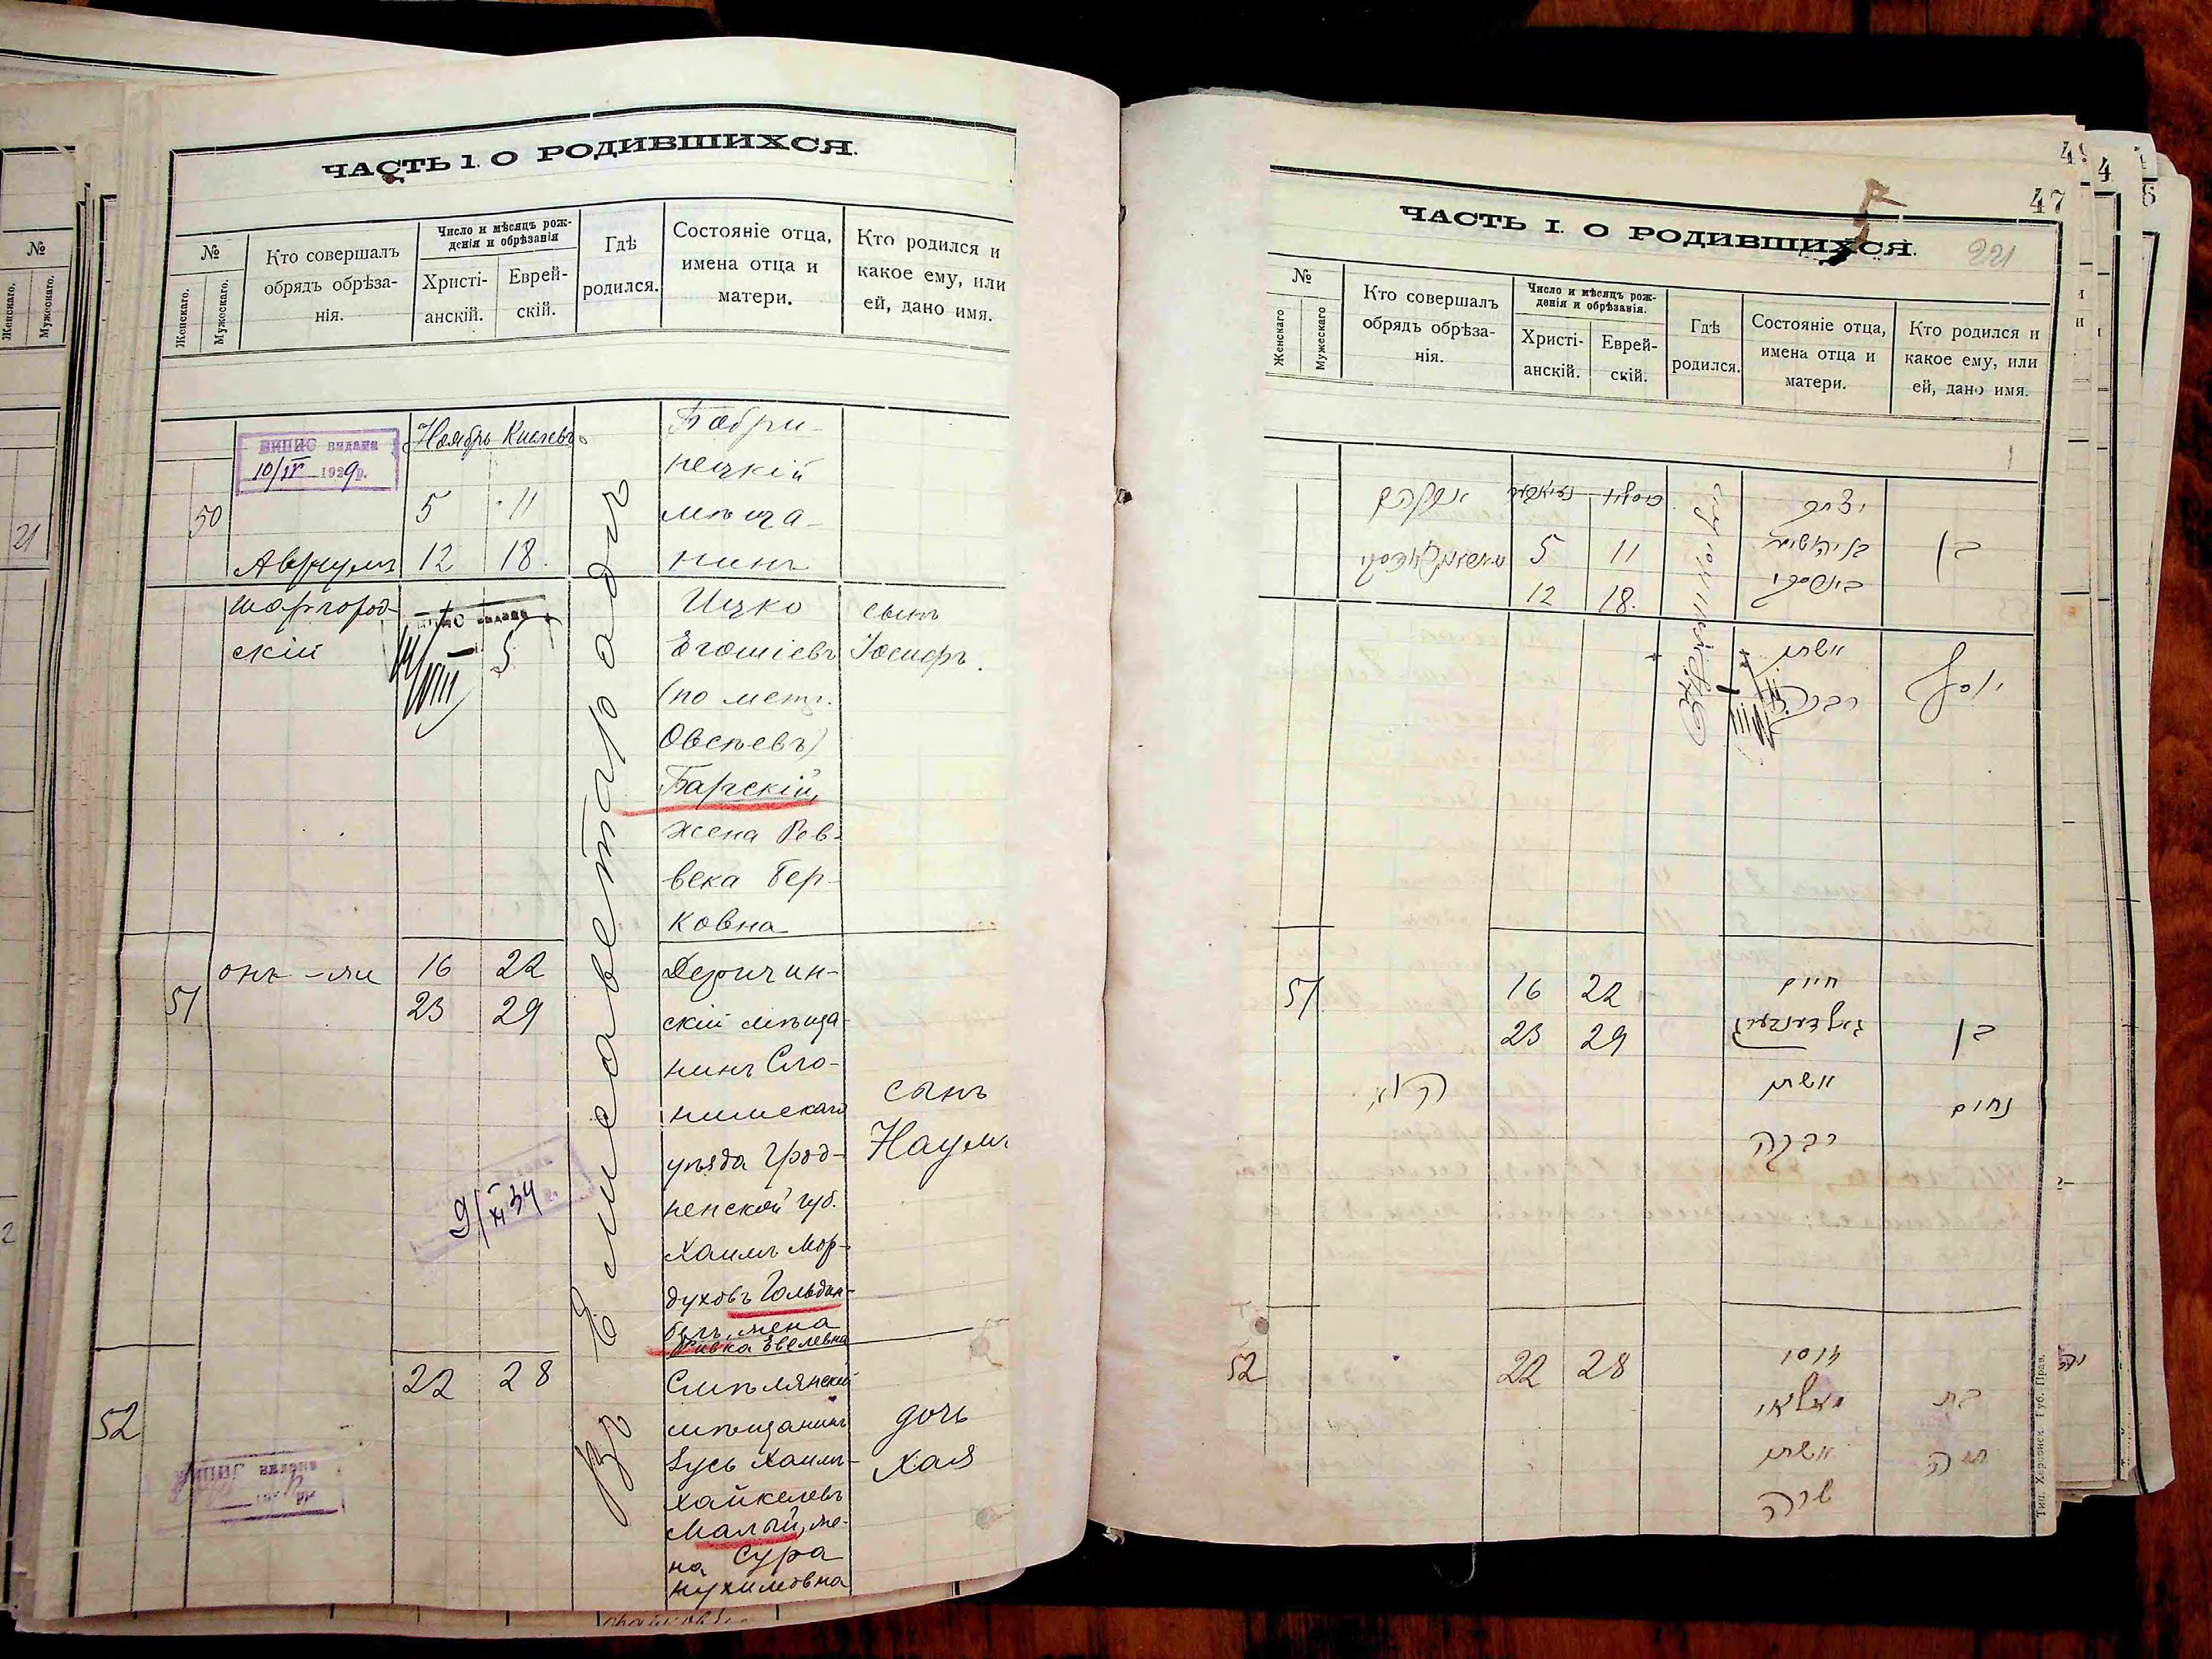 ЧАСТЬ 1. О РОДИВШИХСЯ.
№
Женскаго.
Мужескаго.
Кто совершалъ
обрядъ обрѣза-
нія.
Число и мѣсяцъ рож-
денія и обрѣзанія
Христі-
анскій.
Еврей-
скій.
Гдѣ
родился.
Состояніе отца,
имена отца и
матери.
Кто родился и
какое ему, или
ей, дано имя.
ВИПИС видана
10/IV 1929р.
Ноябрь Кислевъ
50
5 11
12 18.
Аврумъ
шаргород-
скій
Во Елисаветградѣ
Бобри-
нецкій
мѣща-
нинъ
Ицко
Егошіевъ
(по метр.
Овсѣевъ)
Барскій,
жена Рев-
века Бер-
ковна
сынъ
Іосифъ.
51
онъ-же
16 22
23 29
Деричин-
скій мѣща-
нинъ Сло-
нимскаго
уѣзда Грод-
ненской губ.
Хаимъ Мор-
духовъ Гольдин-
бергъ, жена
Ривка Евелевна
сынъ
Наумъ
9/XI 34
52
22 28
Смѣлянскій
мѣщанинъ
Зусь Хаимъ-
Хайкелевъ
Малый, же-
на Сура
Нухимовна
дочь
Хая
ВИПИС видана
№
Женскаго.
Мужескаго.
21
47
221
ЧАСТЬ I. О РОДИВШИХСЯ.
№
Женскаго
Мужескаго
Кто совершалъ
обрядъ обрѣза-
нія.
Число и мѣсяцъ рож-
денія и обрѣзанія.
Христі-
анскій.
Еврей-
скій.
Гдѣ
родился.
Состояніе отца,
имена отца и
матери.
Кто родился и
какое ему, или
ей, дано имя.
אברהם
5 11
12 18.
יצחק
אשתו
רבקה
בן
יוסף
51
16 22
23 29
הוא
חיים
אשתו
רבקה
בן
נחום
52
22 28
זוסי
מאליי
אשתו
שרה
בת
חיה
Тип. Херсонск. Губ. Прав.